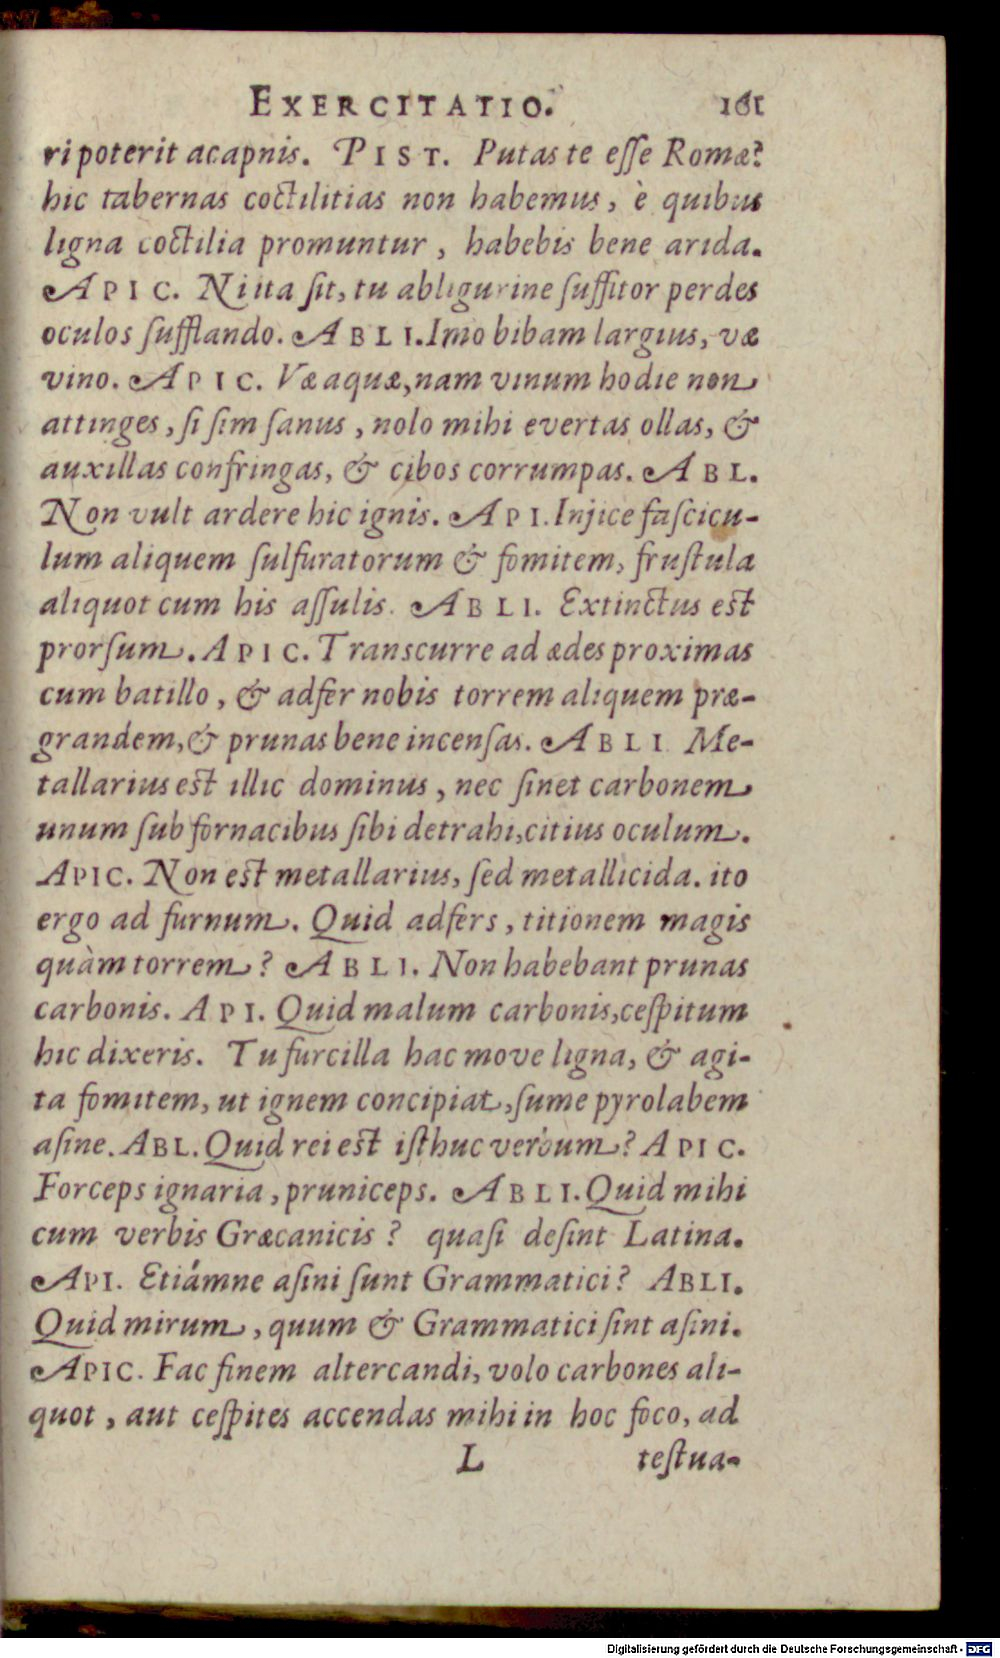 EXERCITATIO. 161
ri poterit acapnis. PIST. Putas te eſſe Romæ?
hic tabernas coctilitias non habemus, è quibus
ligna coctilia promuntur, habebis bene arida.
APIC. Ni ita ſit, tu abligurine ſuffitor perdes
oculos ſufflando. ABLI. Imo bibam largius, væ
vino. APIC. Væ aquæ, nam vinum hodie non
attinges, ſi ſim ſanus, nolo mihi evertas ollas, &
auxillas confringas, & cibos corrumpas. ABL.
Non vult ardere hic ignis. API. Injice faſcicu-
lum aliquem ſulfuratorum & fomitem, fruſtula
aliquot cum his aſſulis. ABLI. Extinctus eſt
prorſum. APIC. Transcurre ad ædes proximas
cum batillo, & adfer nobis torrem aliquem præ-
grandem, & prunas bene incenſas. ABLI Me-
tallarius eſt illic dominus, nec ſinet carbonem
unum ſub fornacibus ſibi detrahi, citius oculum.
APIC. Non eſt metallarius, ſed metallicida. ito
ergo ad furnum. Quid adfers, titionem magis
quàm torrem? ABLI. Non habebant prunas
carbonis. API. Quid malum carbonis, ceſpitum
hic dixeris. Tu furcilla hac move ligna, & agi-
ta fomitem, ut ignem concipiat, ſume pyrolabem
aſine. ABL. Quid rei eſt iſthuc verbum? APIC.
Forceps ignaria, pruniceps. ABLI. Quid mihi
cum verbis Græcanicis? quaſi deſint Latina.
API. Etiámne aſini ſunt Grammatici? ABLI.
Quid mirum, quum & Grammatici ſint aſini.
APIC. Fac finem altercandi, volo carbones ali-
quot, aut ceſpites accendas mihi in hoc foco, ad
L teſtua-
Digitalisierung gefördert durch die Deutsche Forschungsgemeinschaft - DFG